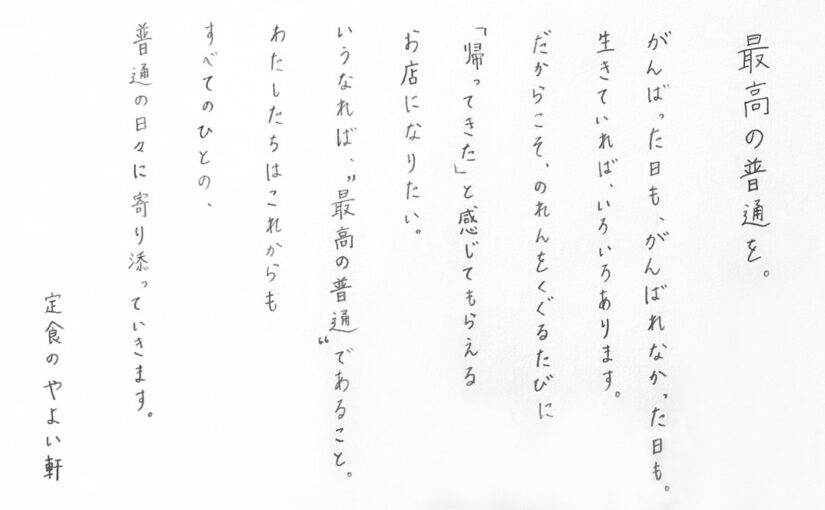 最高の普通を。
がんばった日も、がんばれなかった日も。
生きていれば、いろいろあります。
だからこそ、のれんをくぐるたびに
「帰ってきた」と感じてもらえる
お店になりたい。
いうなれば、〝最高の普通〟であること。
わたしたちはこれからも
すべてのひとの、
普通の日々に寄り添っていきます。
定食のやよい軒